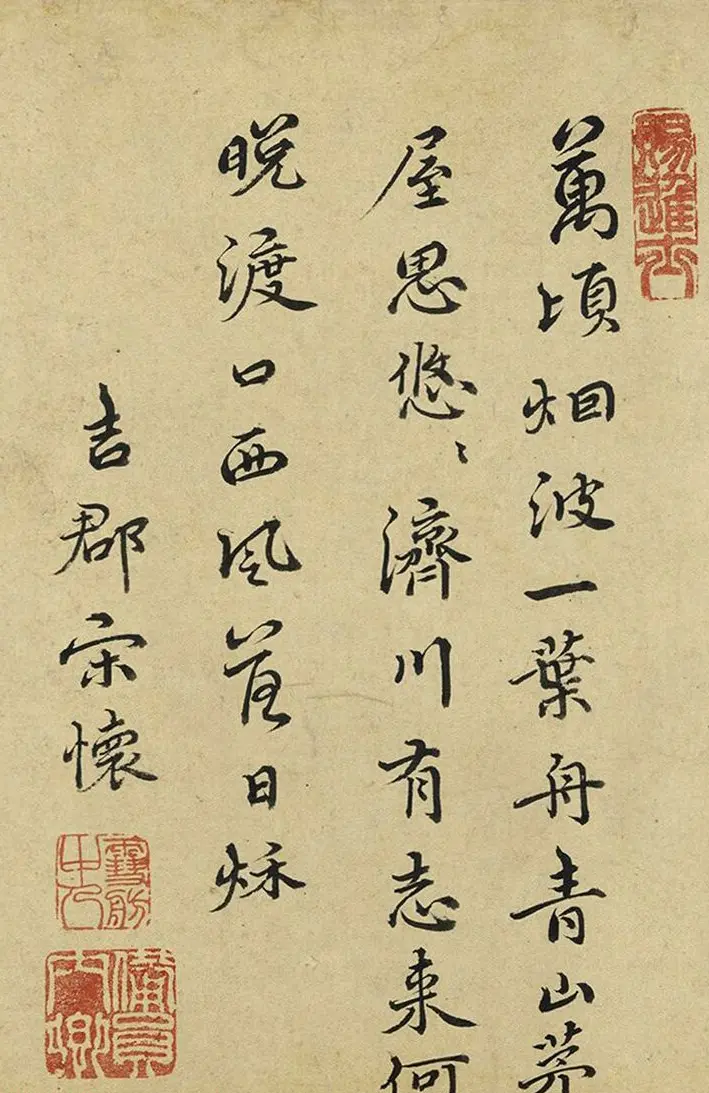 萬頃烟波一葉舟青山茅
屋思悠〻濟川有志来何
晚渡口西風落日秌
吉郡宋懷